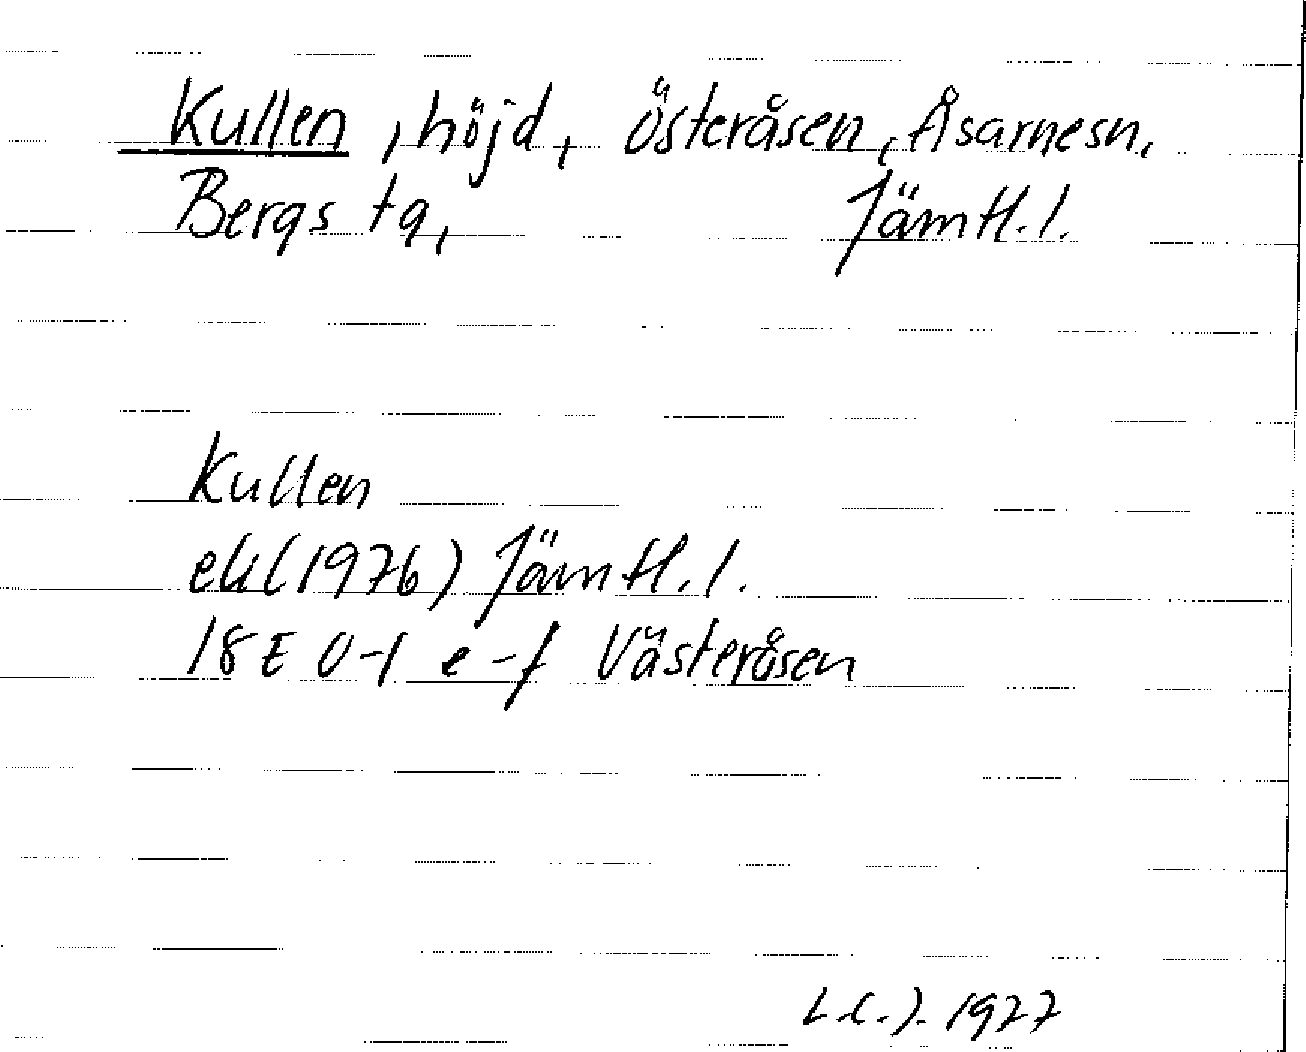 Kullen, höjd, Österåsen, Åsarnesn,
Bergs tg, Jämtl.l.
Kullen
ek (1976) Jämtl.l.
18E 0-1 e-f Västeråsen
L.C.J. 1977